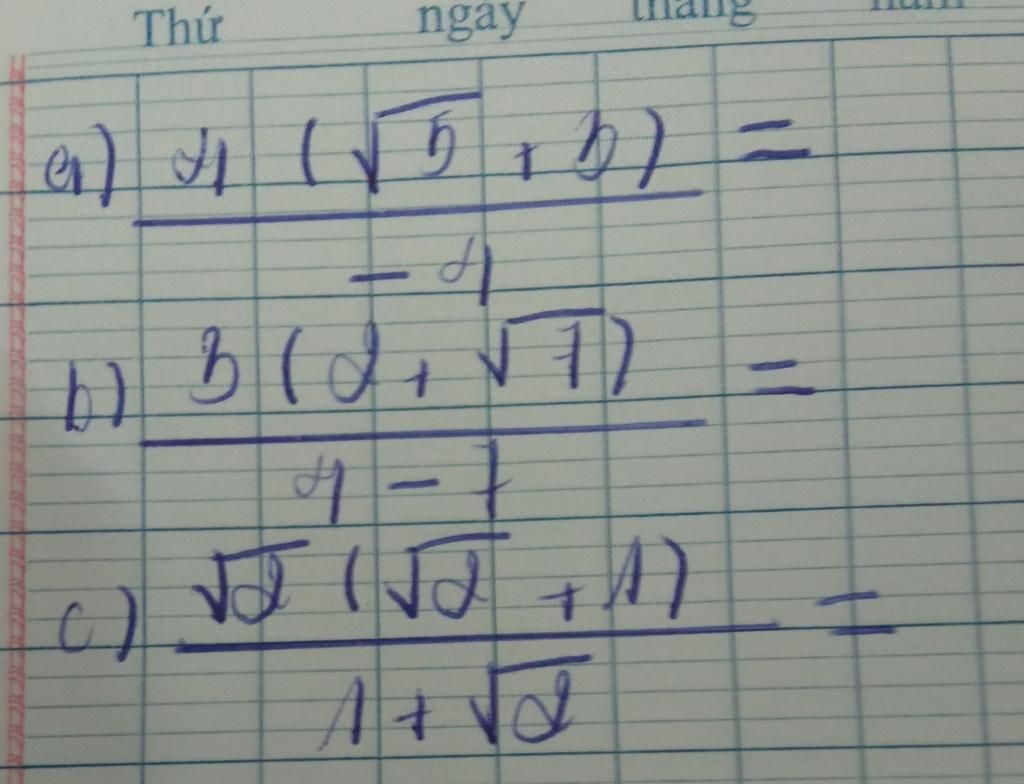 Thứ ngày tháng năm
a) 4 (√5 + 3) =
- 4
b) 3 (2 + √7) =
4 - 7
c) √2 (√2 + 1) =
1 + √2